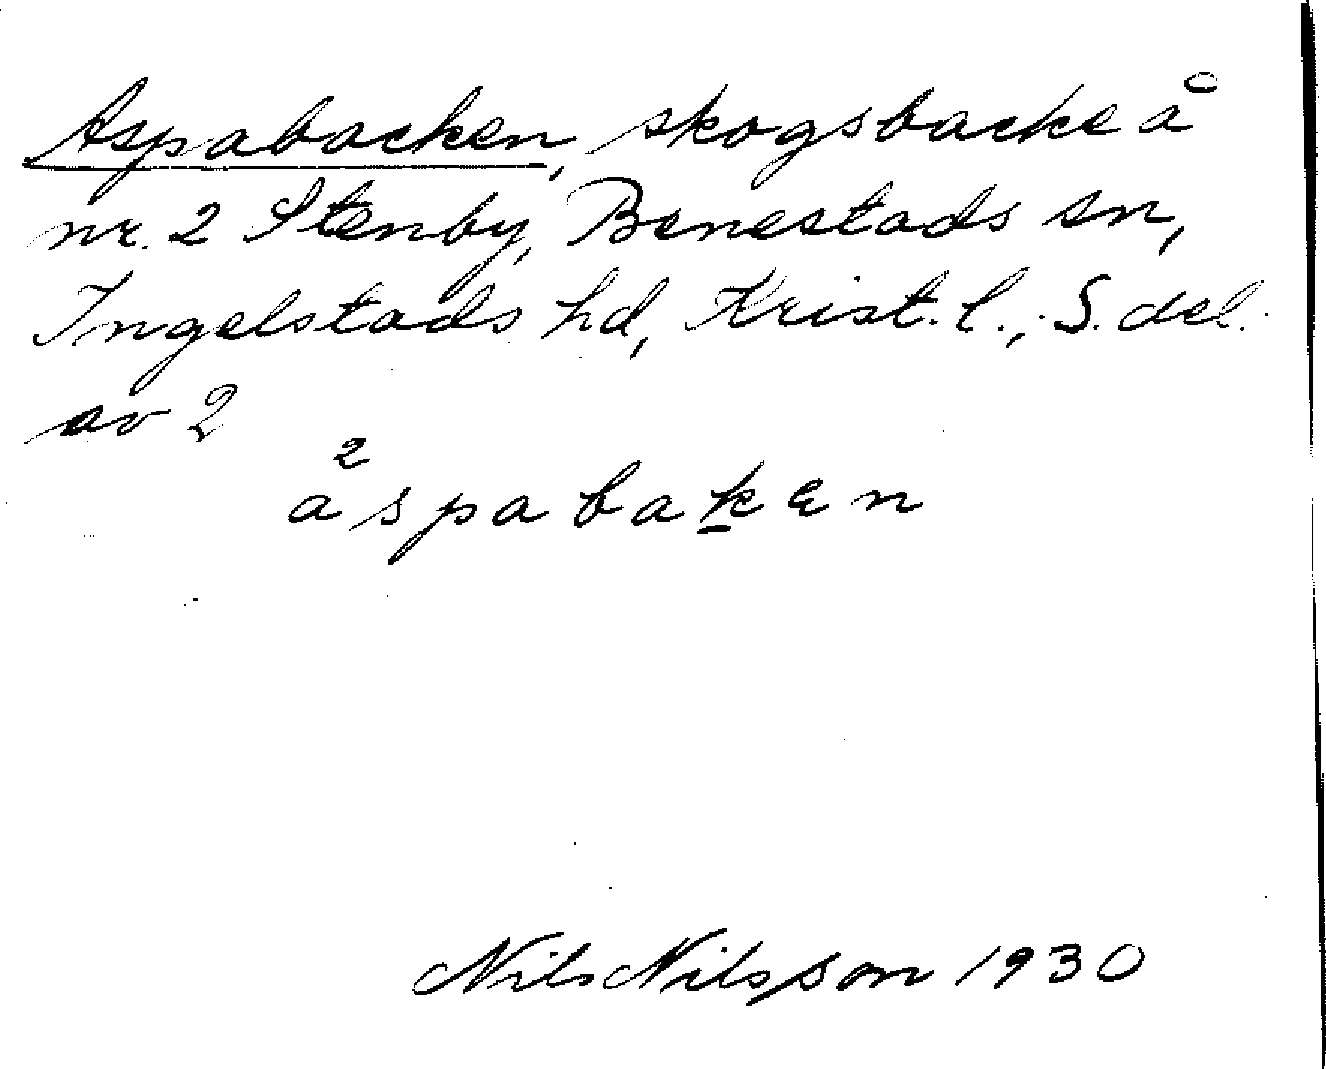 Aspabacken, skogsbacke å
nr. 2 Stenby, Benestads sn,
Ingelstads hd, Krist. l., S. del.
av 2
a²spabak̲ɛn
Nils Nilsson 1930